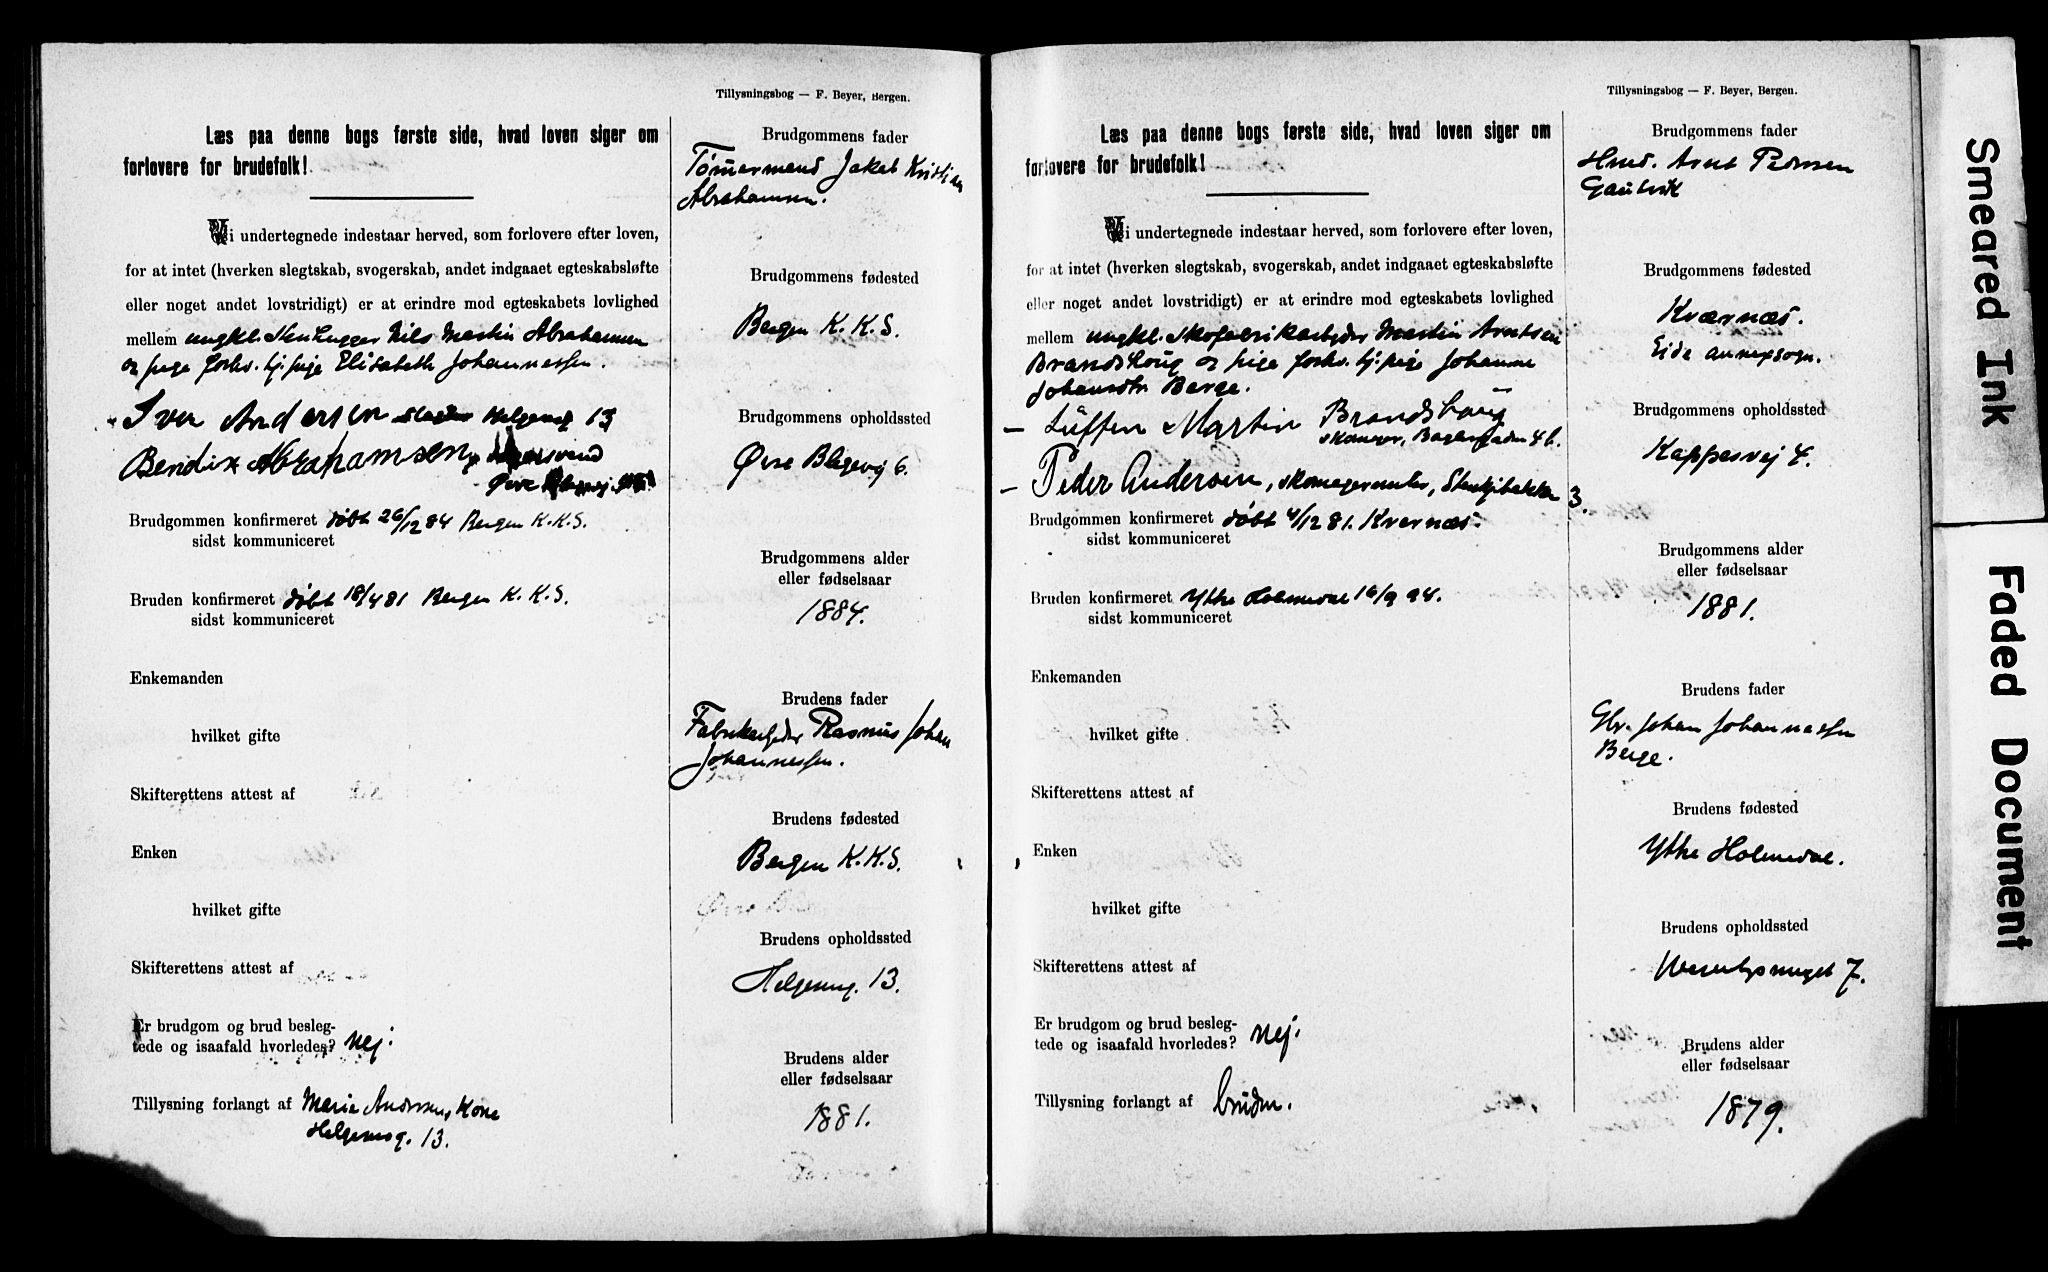 Tillysningsbog — F. Beyer, Bergen.
Læs paa denne bogs første side, hvad loven siger om
forlovere for brudefolk!
Vi undertegnede indestaar herved, som forlovere efter loven,
for at intet (hverken slegtskab, svogerskab, andet indgaaet egteskabsløfte
eller noget andet lovstridigt) er at erindre mod egteskabets lovlighed
mellem ungkl. Stenhugger Nils Martin Abrahamsen
og pige forhv. tj. pige Elisabeth Johannessen.
Iver Andersen Helgesensg 13
Bendix Abrahamsen,
Øvre
Brudgommen konfirmeret døbt 26/12 84 Bergen K.K.S.
sidst kommuniceret
Bruden konfirmeret døbt 18/4 81 Bergen K.K.S.
sidst kommuniceret
Enkemanden
hvilket gifte
Skifterettens attest af
Enken
hvilket gifte
Skifterettens attest af
Er brudgom og brud besleg-
tede og isaafald hvorledes? nej.
Tillysning forlangt af Marie Andersen, Kone
Helgensg. 13.
Brudgommens fader
Tømmermand Jakob Kristian
Abrahamsen.
Brudgommens fødested
Bergen K.K.S.
Brudgommens opholdssted
Øvre Blegevej 6.
Brudgommens alder
eller fødselsaar
1884.
Brudens fader
Fabrikarbejder Rasmus Johan
Johannessen.
Brudens fødested
Bergen K.K.S.
Brudens opholdssted
Helgesensg. 13.
Brudens alder
eller fødselsaar
1881.
Tillysningsbog — F. Beyer, Bergen.
Læs paa denne bogs første side, hvad loven siger om
forlovere for brudefolk!
Vi undertegnede indestaar herved, som forlovere efter loven,
for at intet (hverken slegtskab, svogerskab, andet indgaaet egteskabsløfte
eller noget andet lovstridigt) er at erindre mod egteskabets lovlighed
mellem ungkl. Skofabrikarbejder Martin Arntsen
Brandshoug og pige forhv. tj. pige Johanne
Johansdtr. Berge.
— Martin Brandshoug
4 b.
— Peder Andersen, skomagermester, 3.
Brudgommen konfirmeret døbt 4/12 81. Kvernæs.
sidst kommuniceret
Bruden konfirmeret Ytre Holmedal 16/9 94.
sidst kommuniceret
Enkemanden
hvilket gifte
Skifterettens attest af
Enken
hvilket gifte
Skifterettens attest af
Er brudgom og brud besleg-
tede og isaafald hvorledes? nej.
Tillysning forlangt af bruden.
Brudgommens fader
Hmd. Arnt Pedersen
Gautvik
Brudgommens fødested
Kværnæs.
Eide annexsogn.
Brudgommens opholdssted
Kappesvej 4.
Brudgommens alder
eller fødselsaar
1881.
Brudens fader
Gbr. Johan Johannessen
Berge.
Brudens fødested
Ytre Holmedal.
Brudens opholdssted
7.
Brudens alder
eller fødselsaar
1879.
Smeared Ink
Faded Document